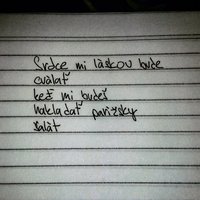 Srdce mi láskou bude
cválať
keď mi budeš
nakladať parížsky
šalát